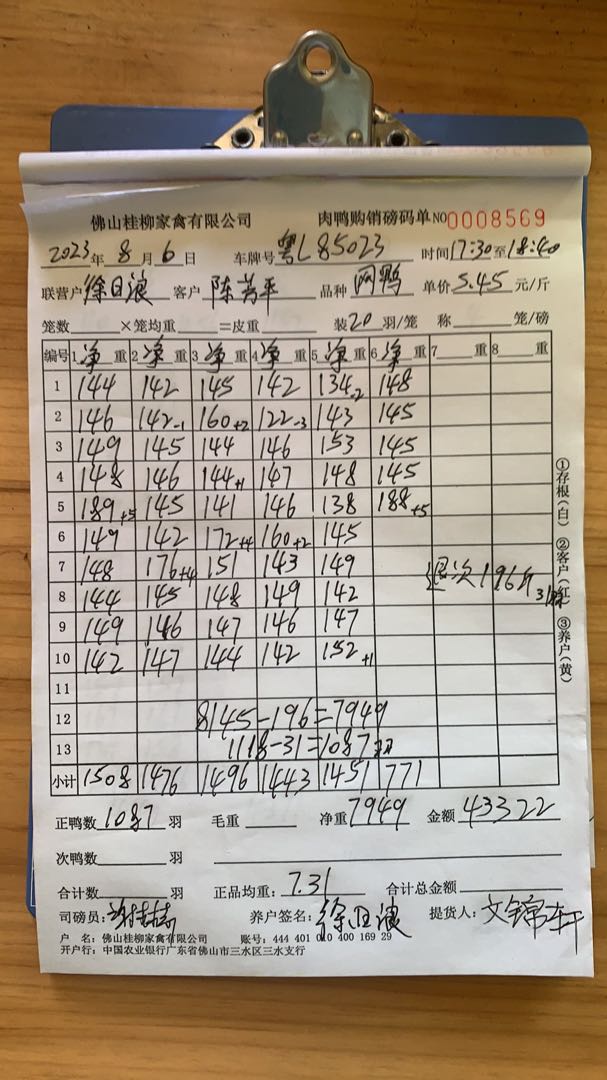 佛山桂柳家禽有限公司 肉鸭购销磅码单 NO 0008569
2023年 8月 6日 车牌号 粤L85023 时间 17:30至18:40
联营户 徐日浪 客户 陈芳平 品种 网鸭 单价 5.45 元/斤
笼数 ×笼均重 =皮重 装20羽/笼 称 笼/磅
编号 1 净重 2 净重 3 净重 4 净重 5 净重 6 净重 7 重 8 重
1 144 142 145 142 134-2 148
2 146 142-1 160+2 122-3 143 145
3 149 145 144 146 153 145
4 148 146 144+1 147 148 145
5 189+5 145 141 146 138 188+5
6 149 142 172+4 160+2 145
7 148 176+4 151 143 149
退次196斤
8 144 145 148 149 142
9 149 146 147 146 147
10 142 147 144 142 152+1
11
12 8145-196=7949
13 1118-31=1087羽
小计 1508 1476 1496 1443 1451 771
①存根(白) ②客户(红) ③养户(黄)
正鸭数 1087 羽 毛重 净重 7949 金额 43322
次鸭数 羽
合计数 羽 正品均重: 7.31 合计总金额
司磅员: 养户签名: 徐日浪 提货人: 文锦轩
户 名: 佛山桂柳家禽有限公司 账号: 444 401 010 400 169 29
开户行: 中国农业银行广东省佛山市三水区三水支行